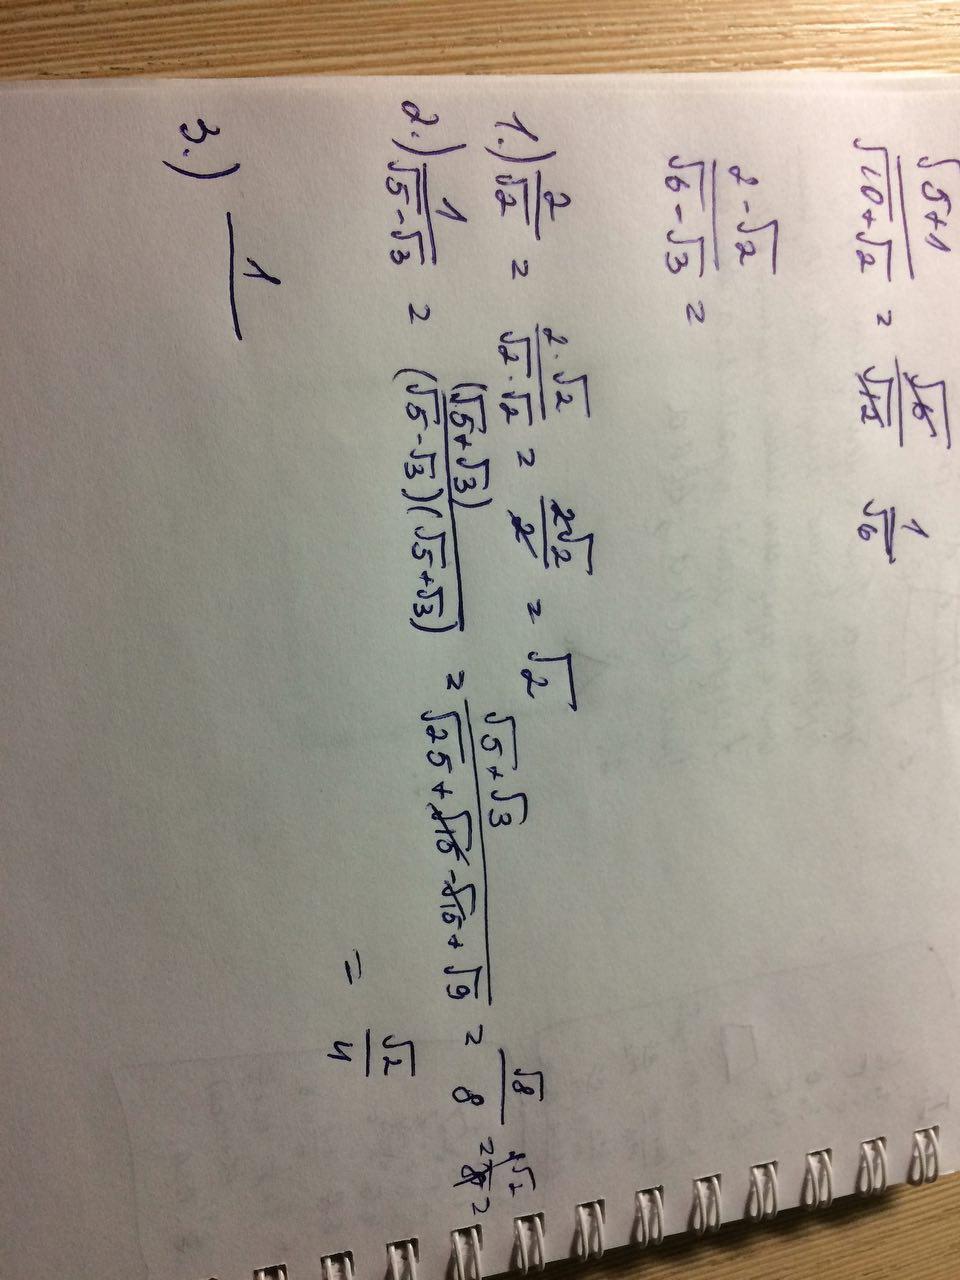 (√5+1)/(√10+√2) = √15/√12 1/√6
(2-√2)/(√6-√3) =
1.) 2/√2 = (2·√2)/(√2·√2) = 2√2/2 = √2
2.) 1/(√5-√3) = (√5+√3)/((√5-√3)(√5+√3)) = (√5+√3)/(√25+√15-√15+√9) = √8/8 =
= √2/4
3.) 1/